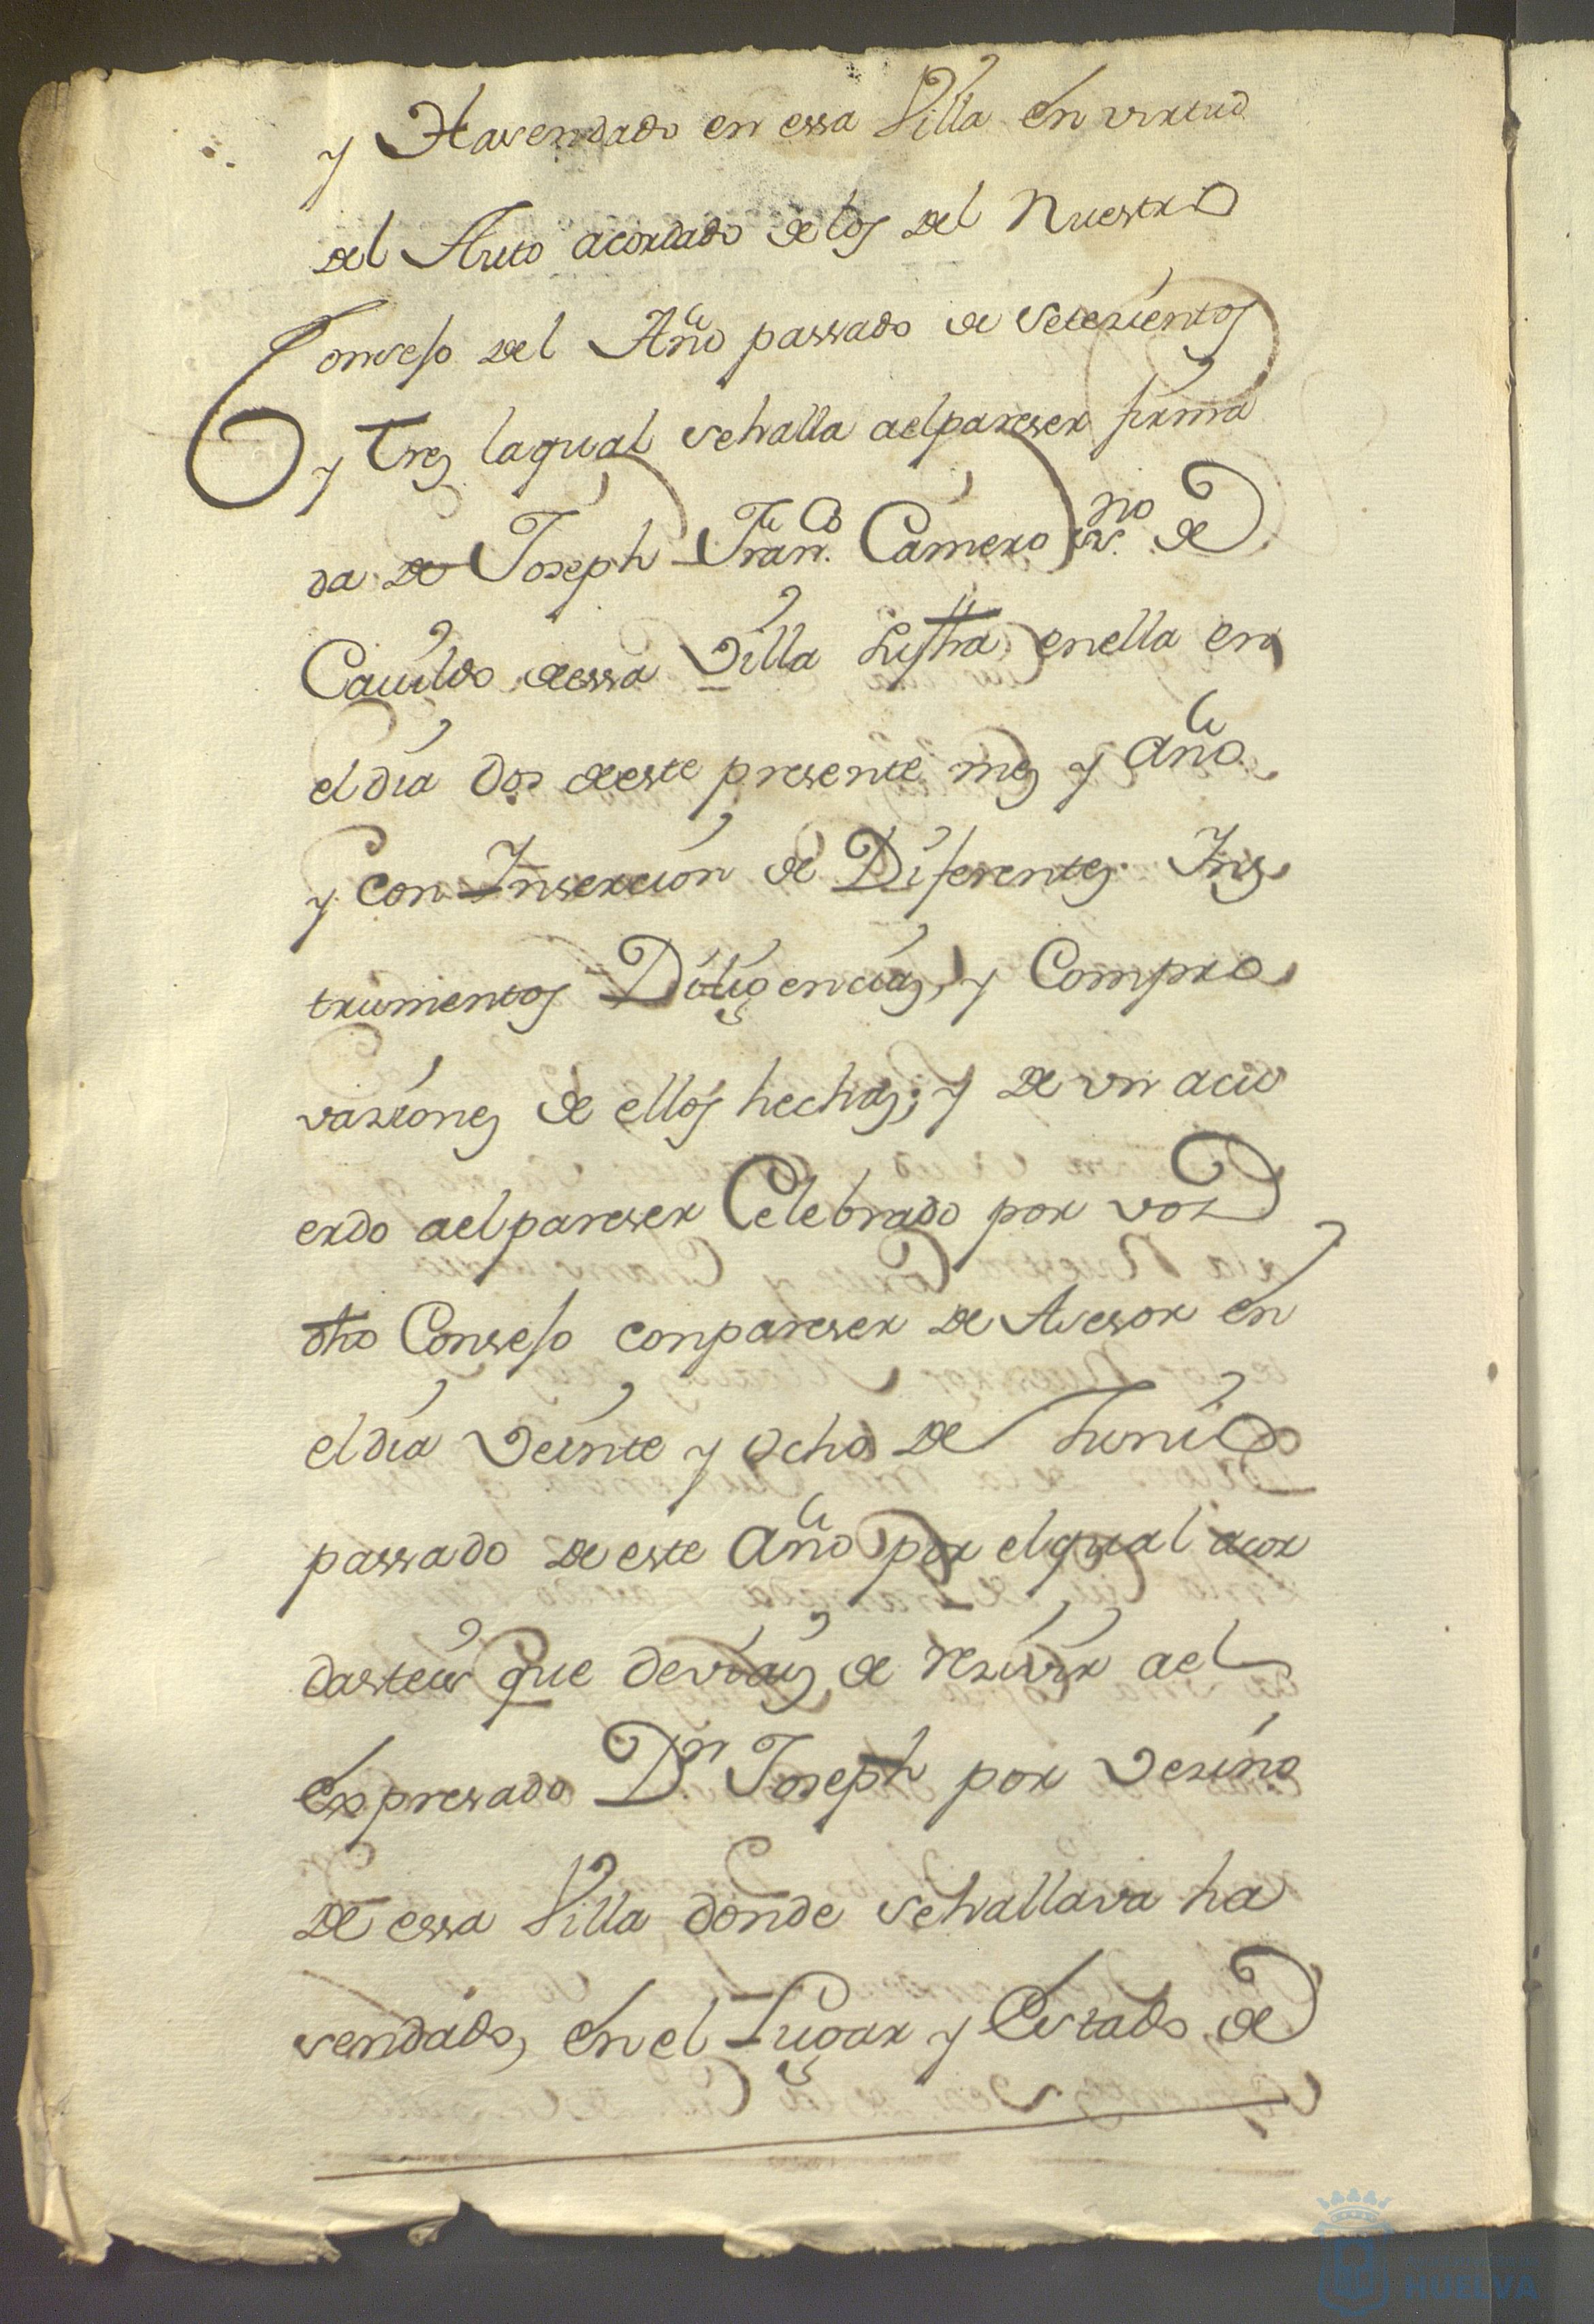 y Hasendado en essa Villa en virtud
del Auto acordado de los del Nuestro
Consejo del Año passado de setezientos
y tres laqual sehalla aelpareser firma
da de Joseph Fran.co Camero ess.no de
Cauildo dessa Villa su ftha enella en
el dia dos deeste presente mes y Año
y con Inserzion de Diferentes Ins
trumentos Diligencias, y Compro
vaziones de ellos hechas; y de vn acu
erdo aelpareser Celebrado por vos
dho Consejo conpareser de Asesor en
el dia Veinte y ocho de Junio
passado de este Año por elqual acor
dasteis que deviais de rezivir ael
expresado Dn Joseph por Vezino
de essa Villa donde sehallava ha
sendado, en el Lugar y Estado de
HUELVA